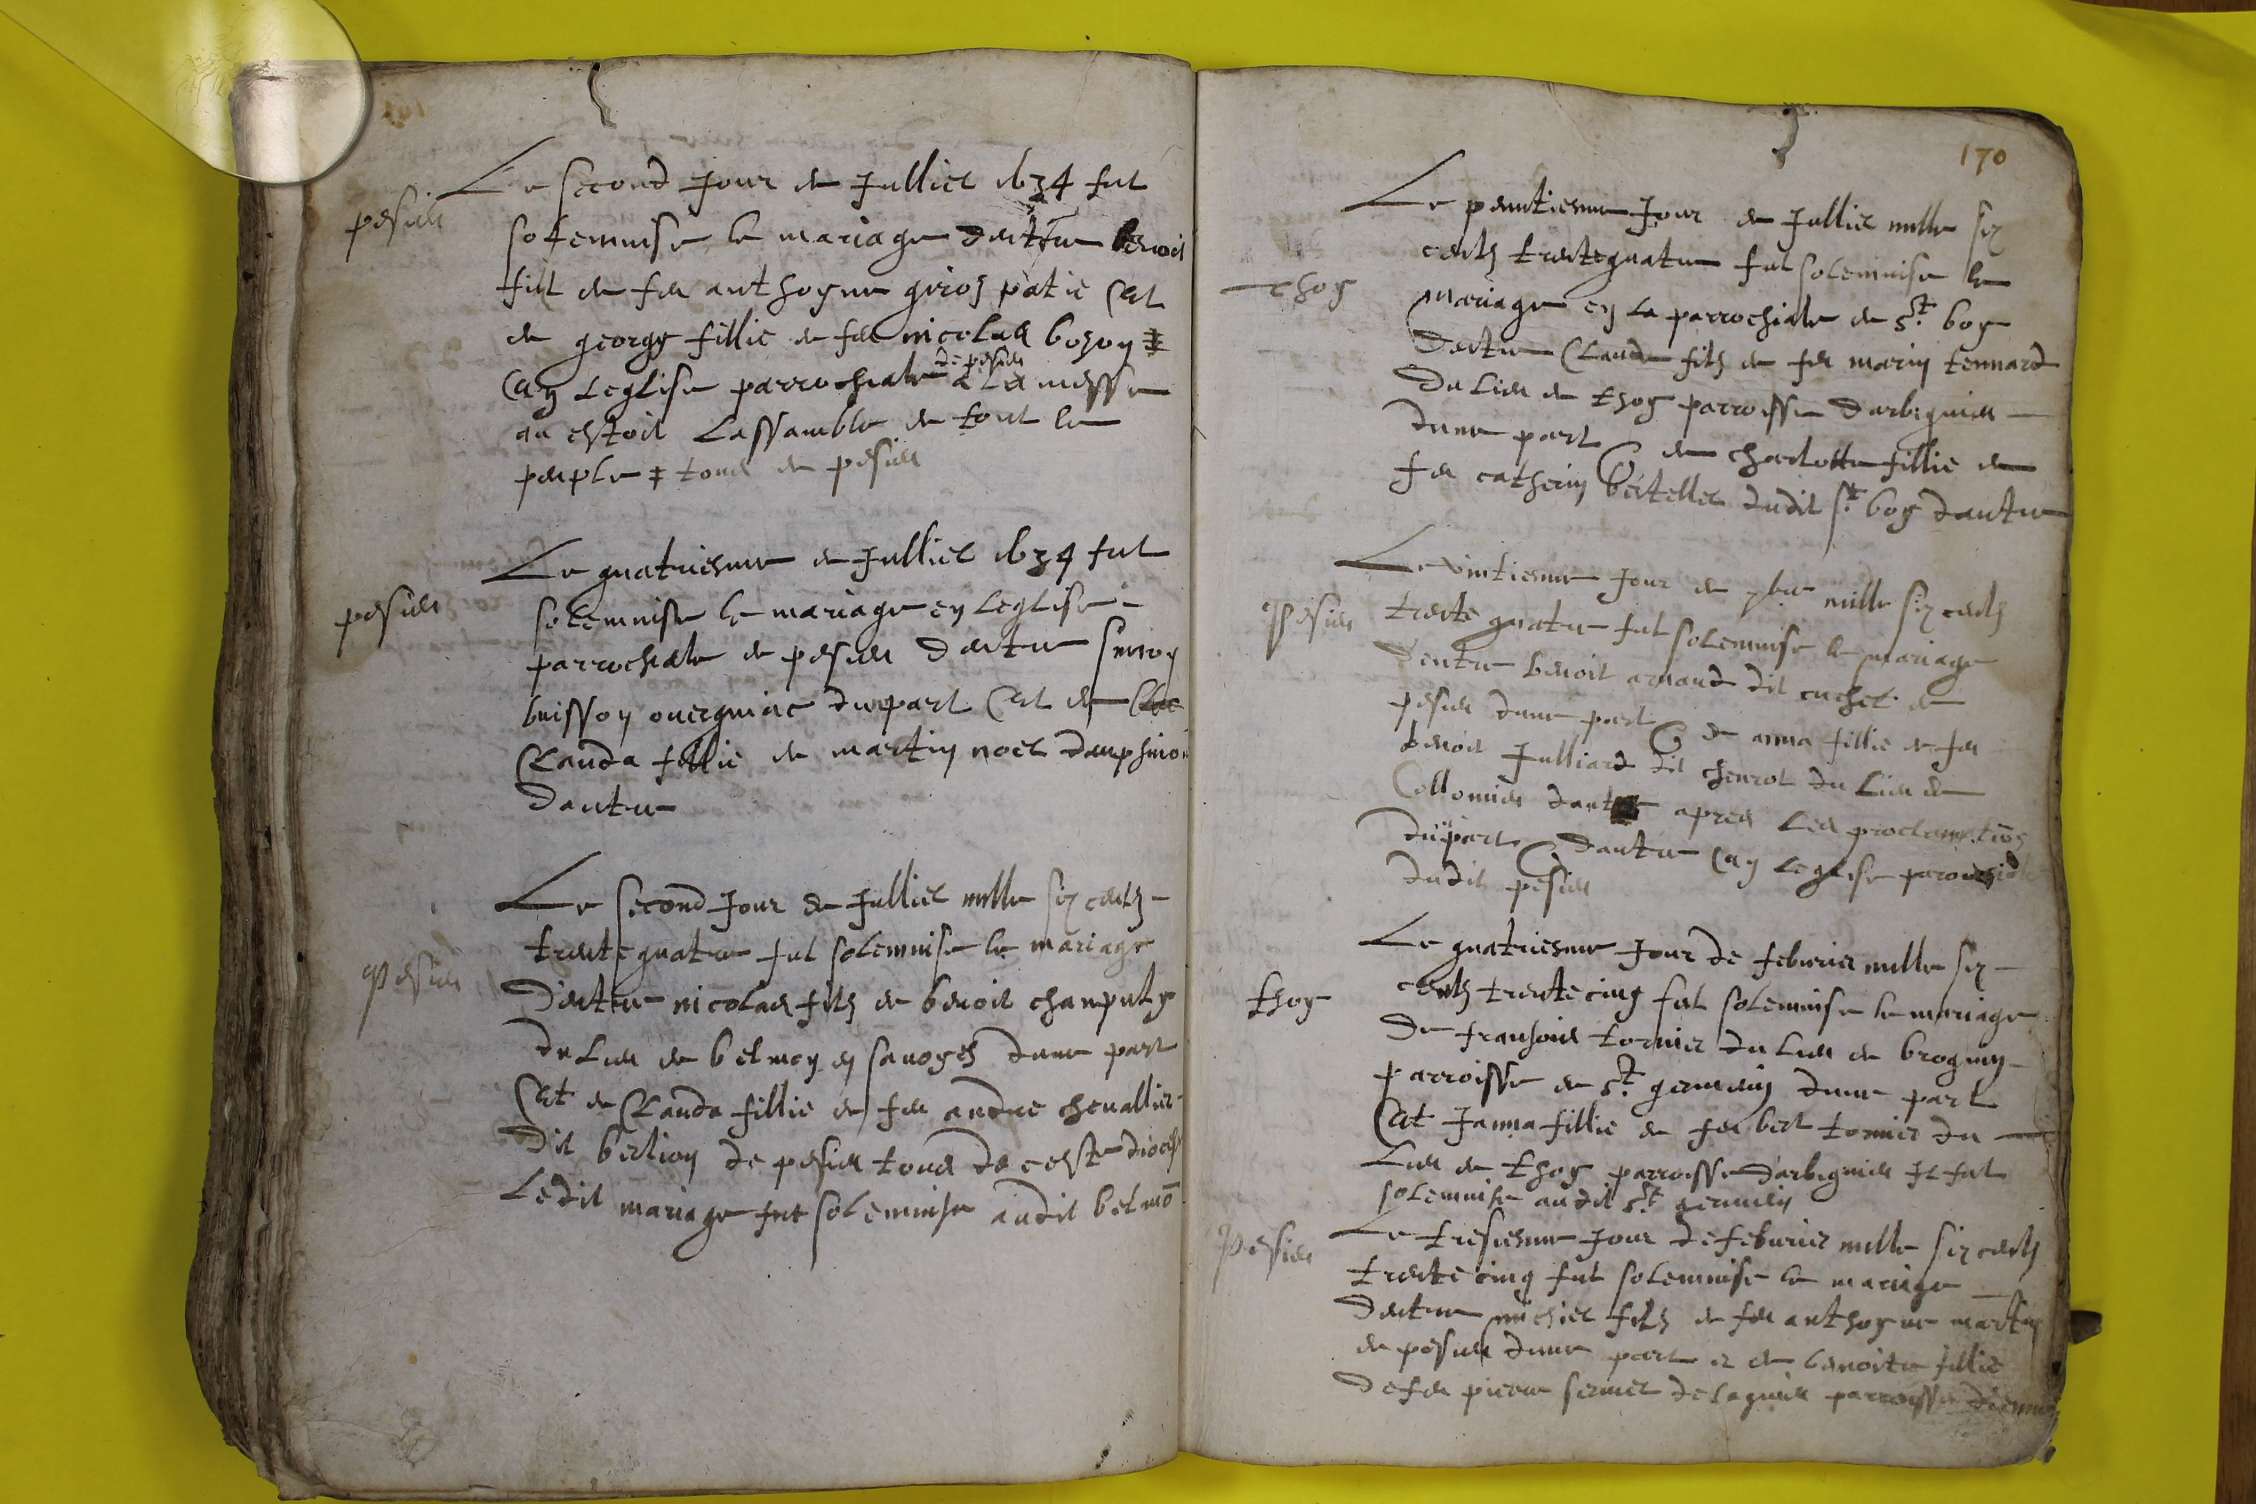 pesieu
Le second Jour de Julliet 1634 fut
solemnise le mariage dentre benoit
filz de feu anthoyne giroz patic Et
de georgy fillie de feu nicolas bozon ǂ
En leglise parrochiale de pesieu a la messe
ou estoit lassamble de tout le
peuple ǂ tous de pesieu
pesieu
Le quatriesme de Julliet 1634 fut
solemnise le mariage en leglise
parrochiale de pesieu dentre simon
buisson overgniac dupart Et de
Clauda fillie de martin noel dauphinoi
dautre
Pesieu
Le second Jour de Julliet mille six centz
trente quatre fut solemnise le mariage
dentre nicolas filz de benoit
du lieu de belmon en savoye dune part
Et de Clauda fillie de feu andre chevallier
dit bertion de pesieu tous de ceste diocese
ledit mariage fut solemnise audit belmo
170
thoy
Le Jour de Julliet mille six
centz trentequatre fut solemnise le
mariage en la parrochiale de St. boy
dentre Claude filz de feu marin tennard
du lieu de thoy parroisse darbignieu
dune part & de charlotte fillie de
feu catherin bertellet dudit St. boy dautre
Pesieu
Le vintiesme Jour de 7bre mille six centz
trente quatre fut solemnise le mariage
dentre benoit arnaud dit cuchet de
pesieu dune part & de anna fillie de feu
benoit Julliard dit chenrot du lieu de
Collomieu dautre apres les proclamations
dupart & dautre En leglise parrochiale
dudit pesieu
thoy
Le quatriesme Jour de febvrier mille six
centz trente cinq fut solemnise le mariage
de franҫois tornier du lieu de brognin
parroisse de St. germain dune part
Et Janna fillie de feu bert tornier du
lieu de thoy parroisse darbignieu Il fut
solemnise audit St. germain
Pesieu
Le tresiesme Jour de febvrier mille six centz
trente cinq fut solemnise le mariage
dentre michiel filz de feu anthoyne martin
de pesieu dune part et de benoite fillie
de feu pierre servet de lagnieu parroisse